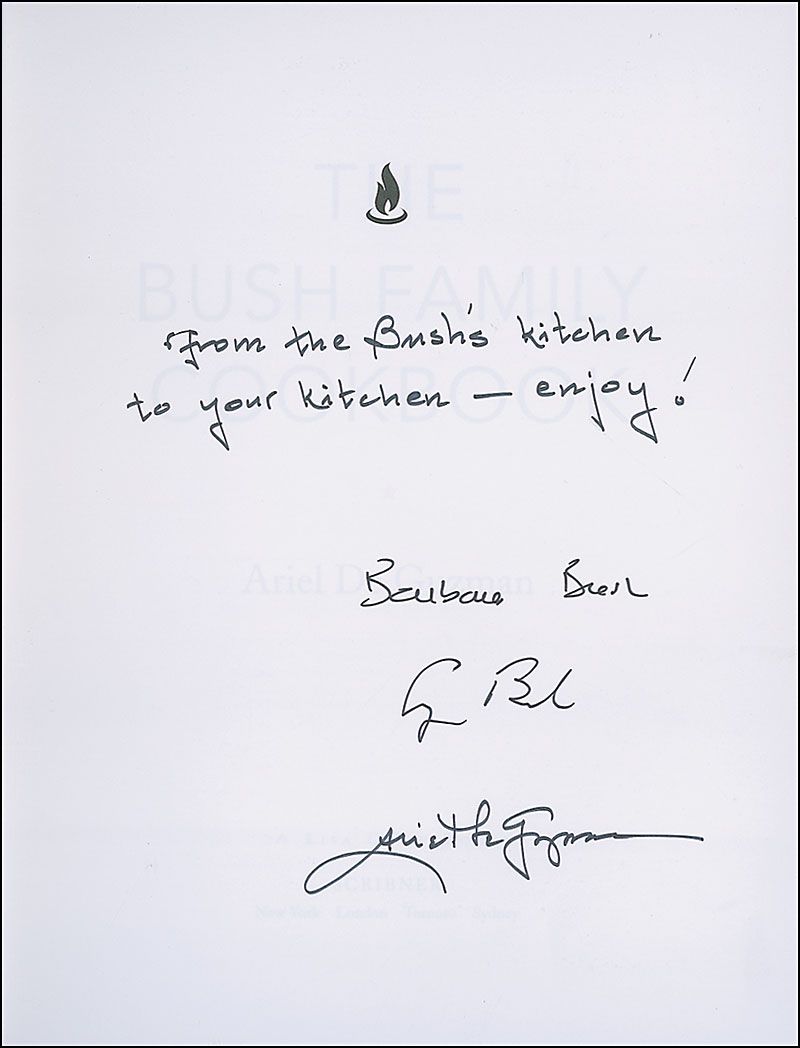 THE
BUSH FAMILY
From the Bush's kitchen
COOKBOOK
to your kitchen — enjoy!
Ariel De Guzman
Barbara Bush
G Bush
Ariel De Guzman
SCRIBNER
New York London Toronto Sydney